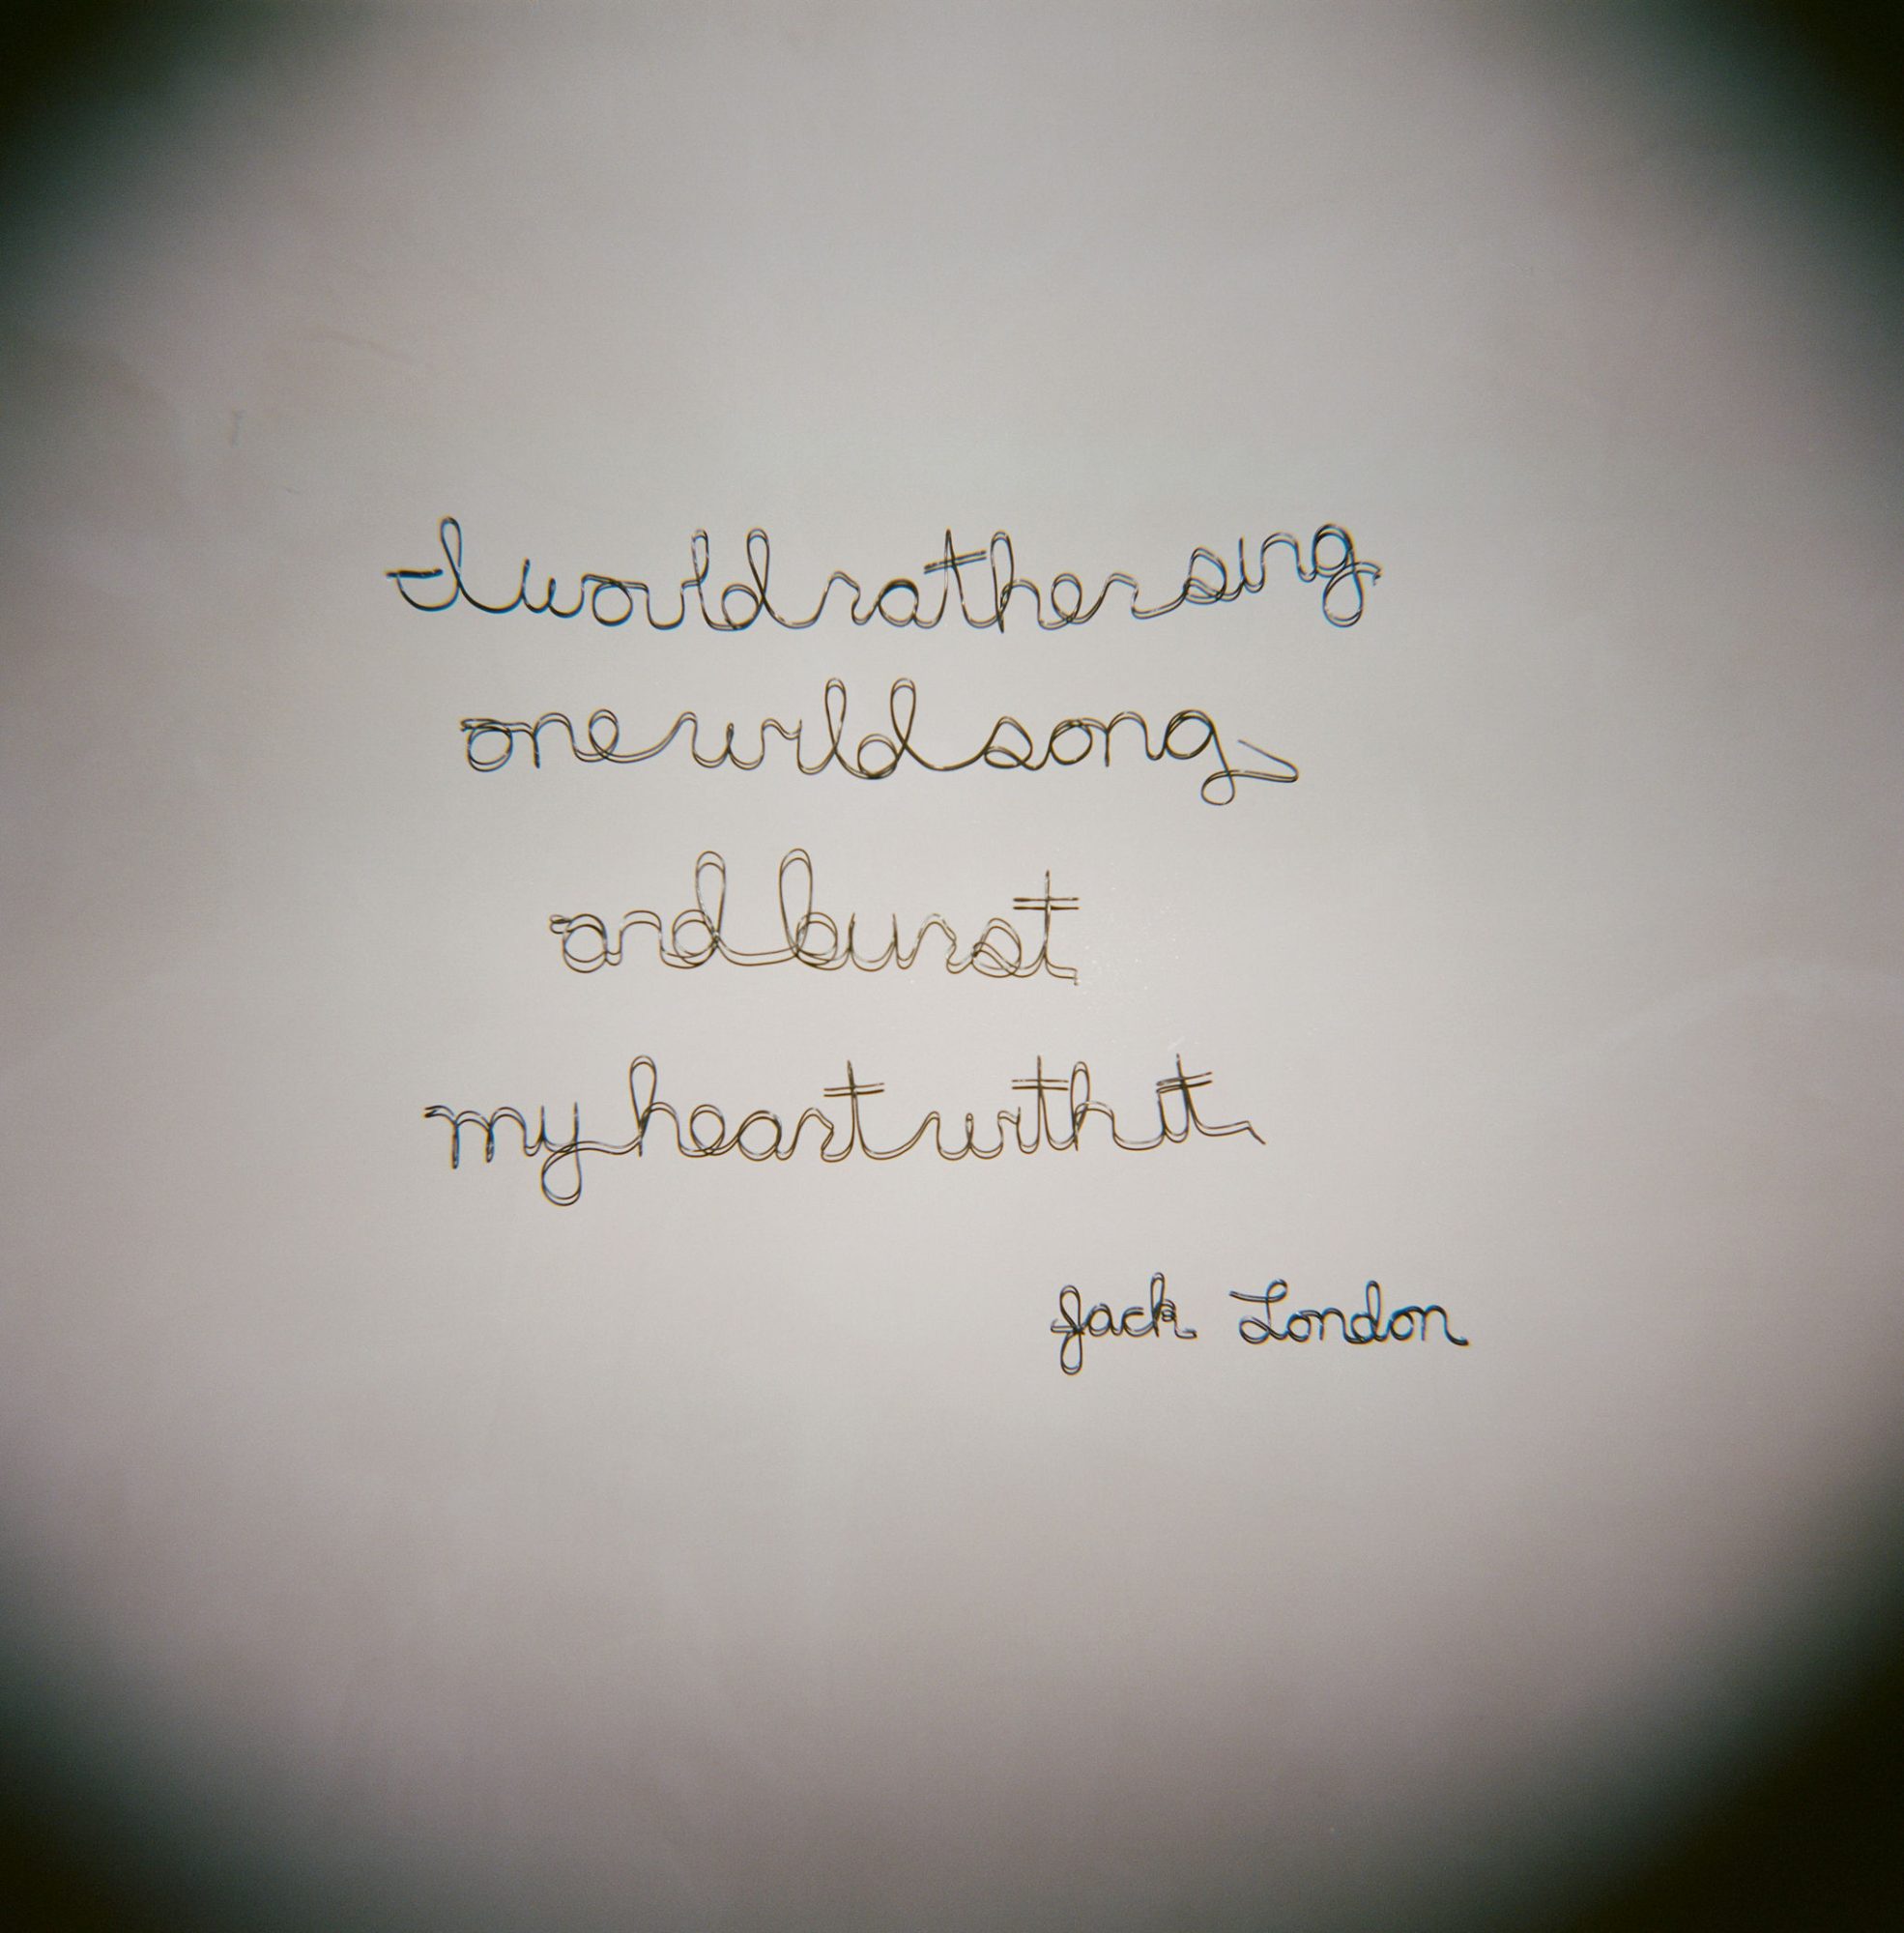 I would rather sing
one wild song
and burst
my heart with it
Jack London